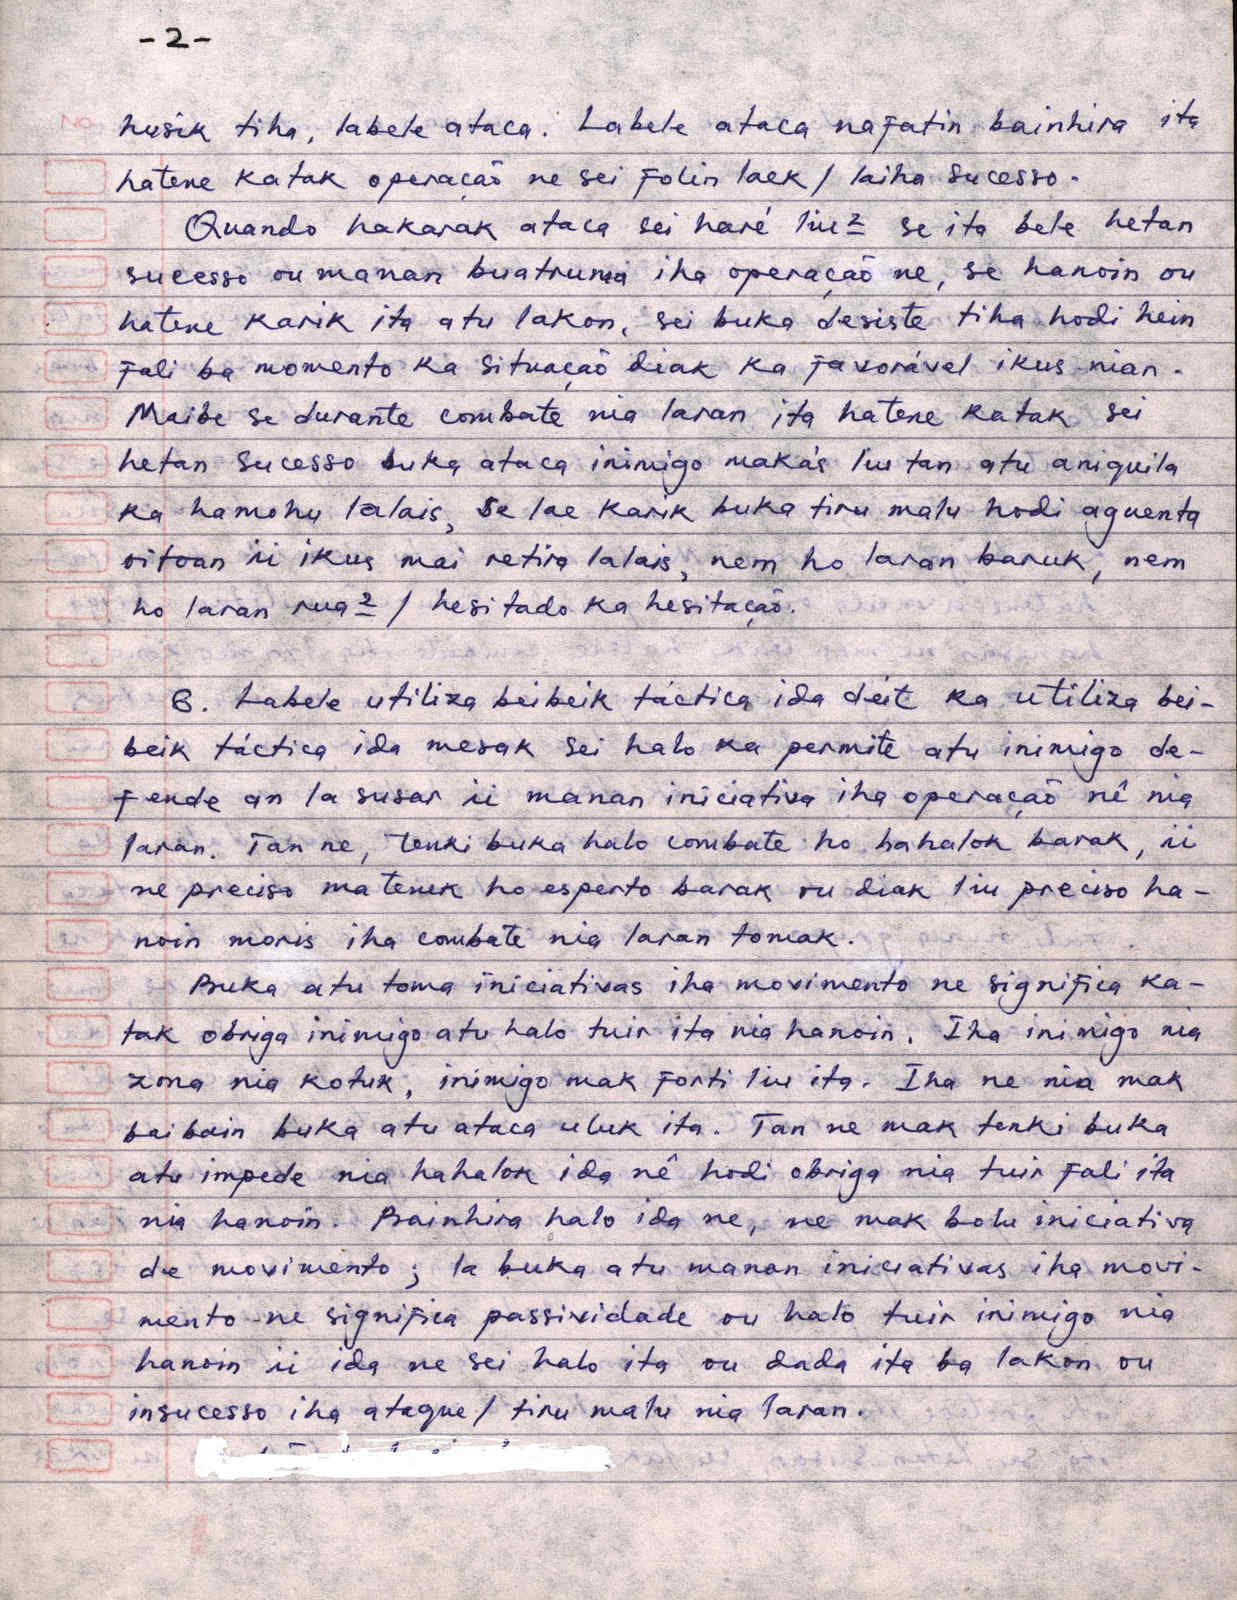 -2-
husik tiha, labele ataca. Labele ataca nafatin bainhira ita
hatene katak operação ne sei folin laek / laiha sucesso.
Quando hakarak ataca sei haré liu2 se ita bele hetan
sucesso ou manan buatruma iha operação ne, se hanoin ou
hatene karik ita atu lakon, sei buka desiste tiha hodi hein
fali ba momento ka situação diak ka favorável ikus nian.
Maibe se durante combate nia laran ita hatene katak sei
hetan sucesso buka ataca inimigo makás liu tan atu aniquila
ka hamohu lalais, se lae karik buka tiru malu hodi aguenta
oitoan ii ikus mai retira lalais, nem ho laran baruk, nem
ho laran rua2 / hesitado ka hesitação.
6. Labele utiliza beibeik táctica ida déit ka utiliza bei-
beik táctica ida mesak sei halo ka permite atu inimigo de-
fende an la susar ii manan iniciativa iha operação nê nia
laran. Tan ne, tenki buka halo combate ho hahalok barak, ii
ne preciso matenek ho esperto barak ou diak liu preciso ha-
noin moris iha combate nia laran tomak.
Buka atu toma iniciativas iha movimento ne significa ka-
tak obriga inimigo atu halo tuir ita nia hanoin. Iha inimigo nia
zona nia kotuk, inimigo mak forti liu ita. Iha ne nia mak
baibain buka atu ataca uluk ita. Tan ne mak tenki buka
atu impede nia hahalok ida nê hodi obriga nia tuir fali ita
nia hanoin. Bainhira halo ida ne, ne mak bolu iniciativa
de movimento; la buka atu manan iniciativas iha movi-
mento ne significa passividade ou halo tuir inimigo nia
hanoin ii ida ne sei halo ita ou dada ita ba lakon ou
insucesso iha ataque / tiru malu nia laran.